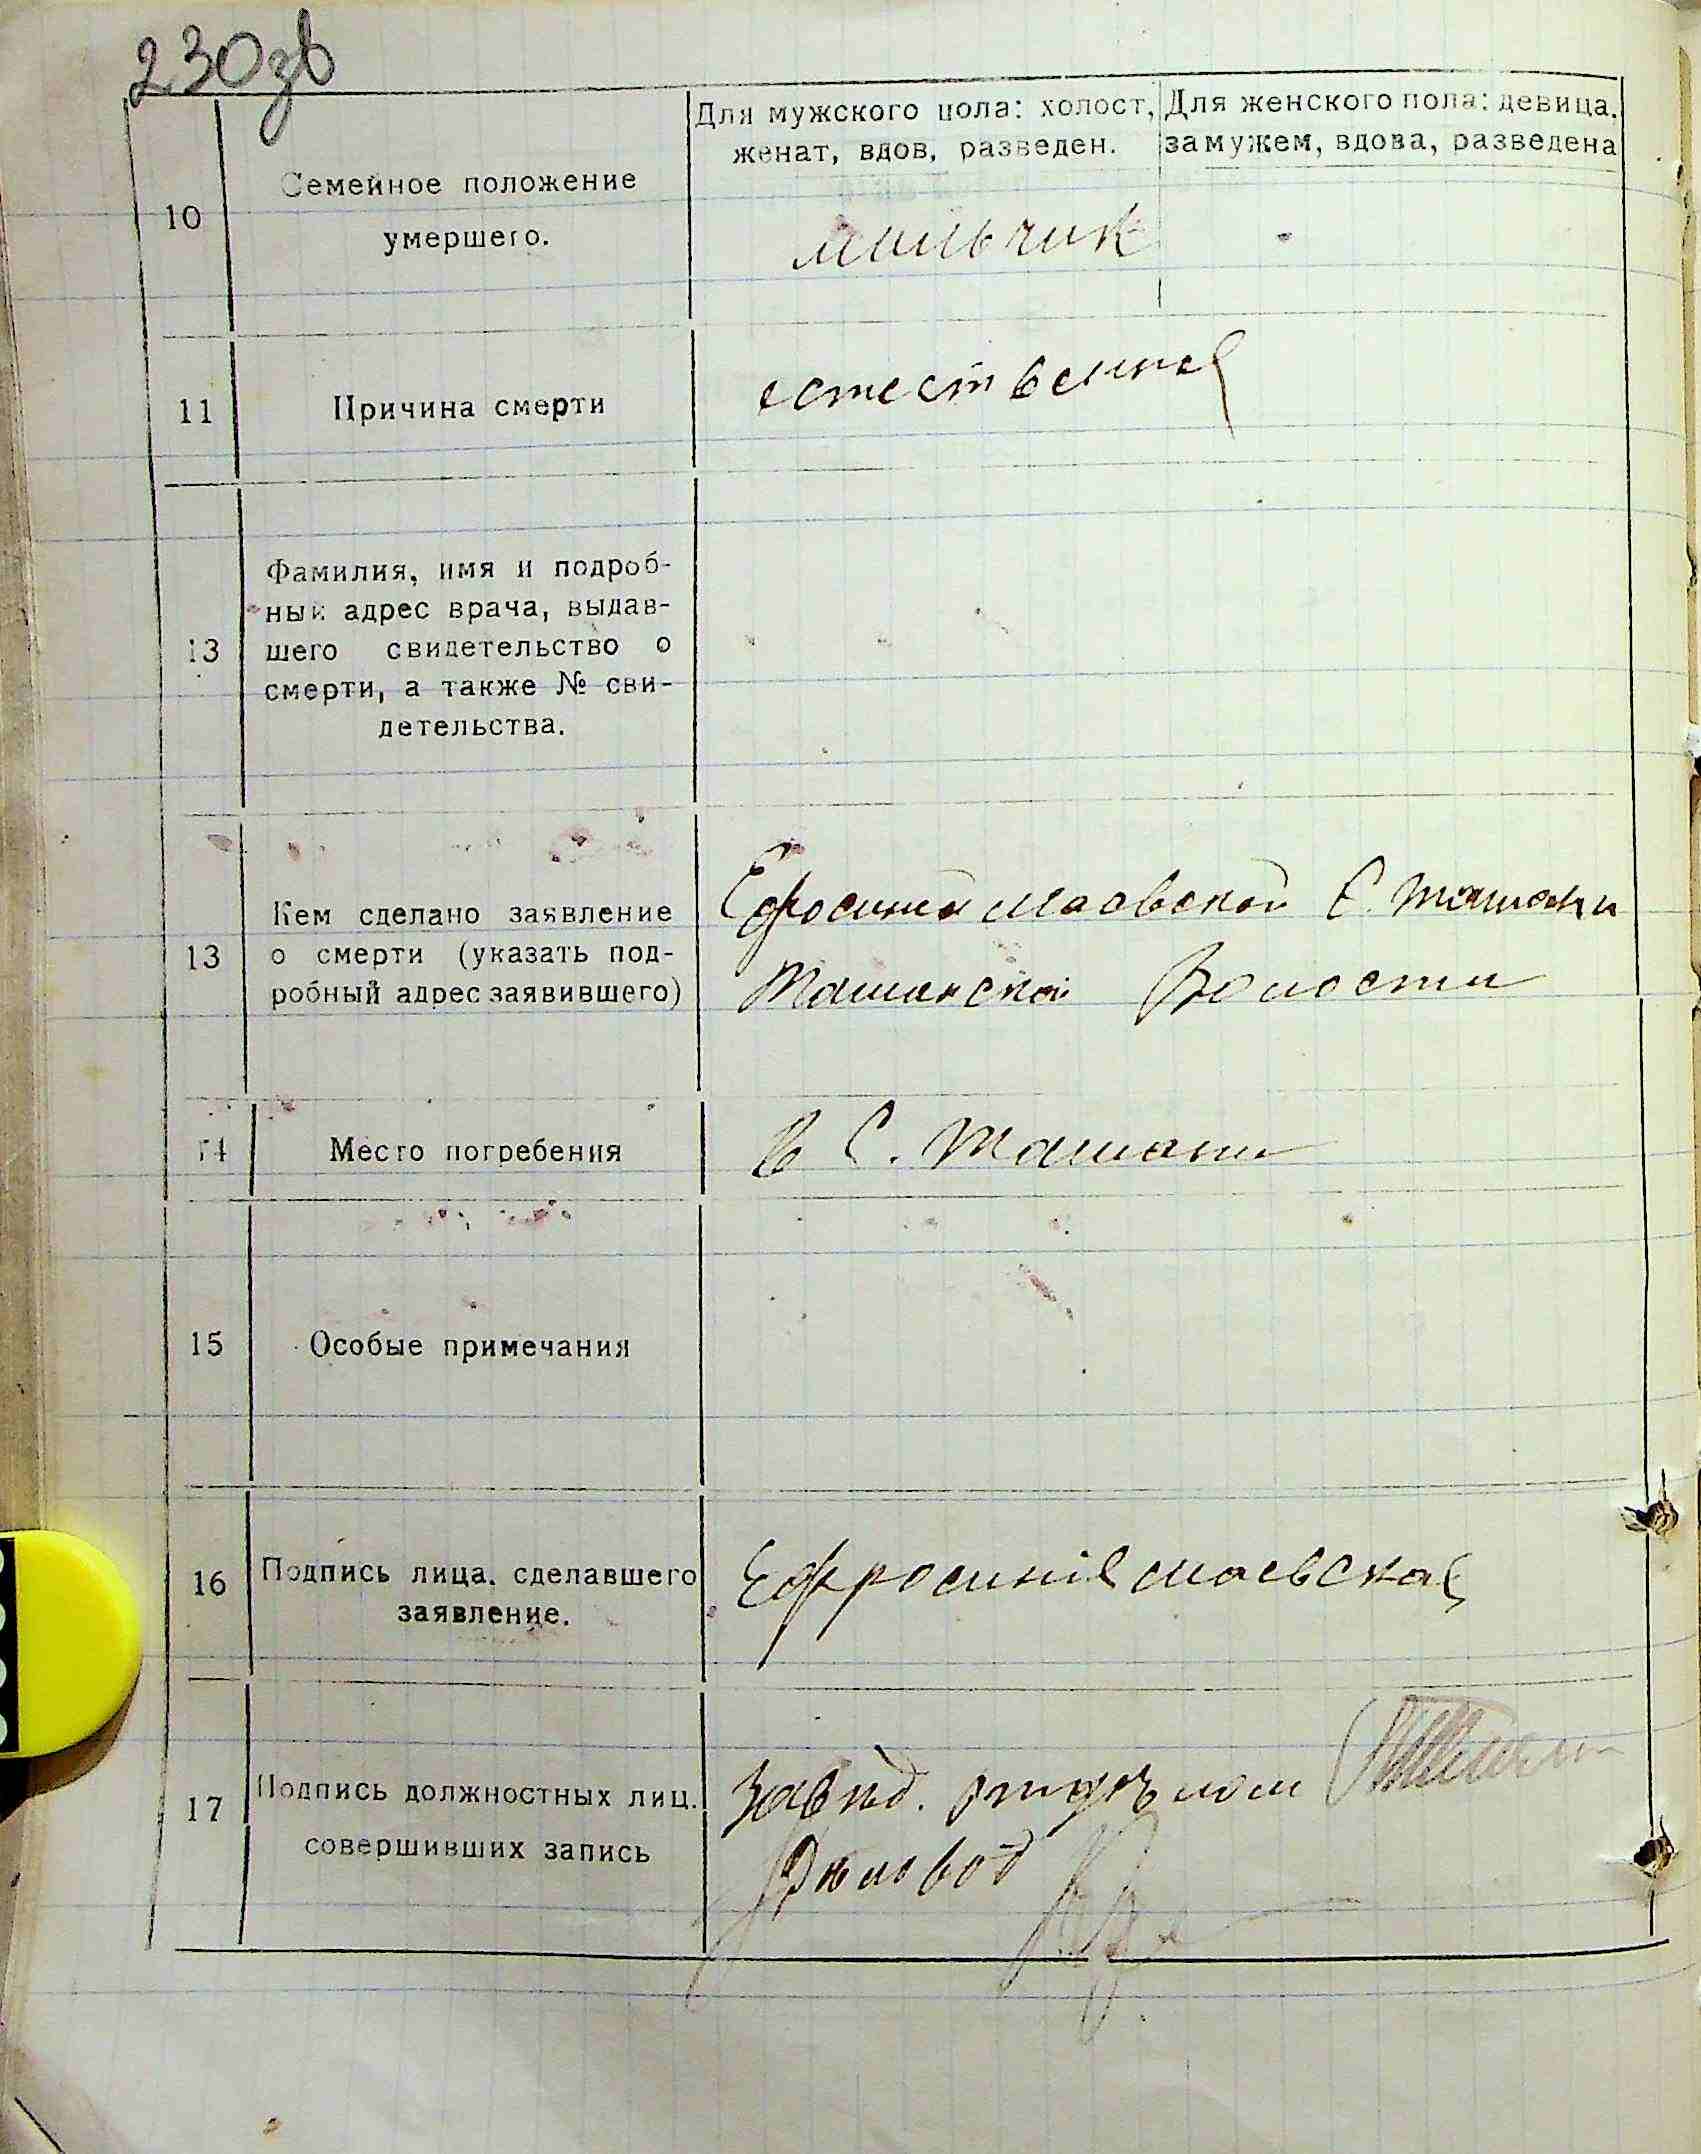 230зв
Для мужского пола: холост,
женат, вдов, разведен.
Для женского пола: девица,
замужем, вдова, разведена
10
Семейное положение
умершего.
мальчик
11
Причина смерти
естественная
13
Фамилия, имя и подроб-
ный адрес врача, выдав-
шего свидетельство о
смерти, а также № сви-
детельства.
13
Кем сделано заявление
о смерти (указать под-
робный адрес заявившего)
Ефросиния Маевской С. Ташани
Ташанской Волости
14
Место погребения
В С. Ташани
15
Особые примечания
16
Подпись лица, сделавшего
заявление.
Ефросинія Маевская
17
Подпись должностных лиц,
совершивших запись
Завѣд. отдѣлом
Дѣловод